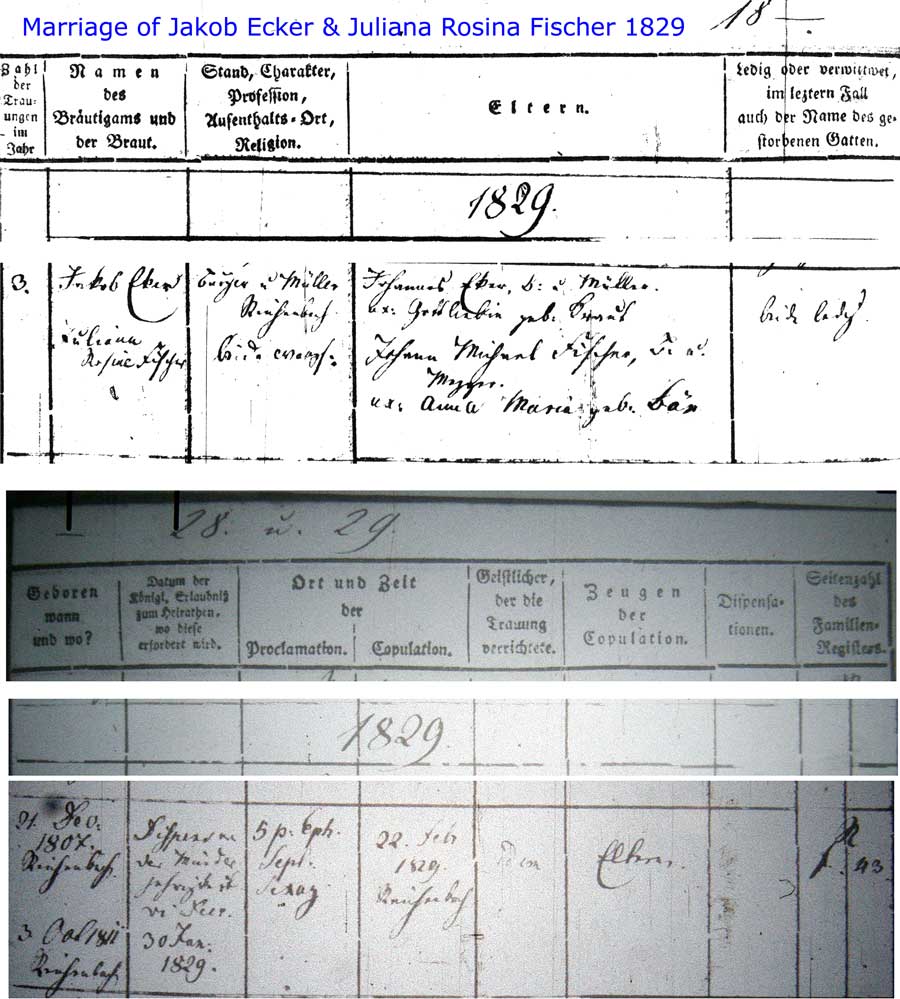 Marriage of Jakob Ecker & Juliana Rosina Fischer 1829
18
Zahl
der
Trau-
ungen
im
Jahr
Namen
des
Bräutigams und
der Braut.
Stand, Charakter,
Profession,
Aufenthalts-Ort,
Religion.
Eltern.
Ledig oder verwittwet,
im leztern Fall
auch der Name des ge-
storbenen Gatten.
1829.
3.
Jakob Eker
Juliana
Rosine Fischer
Bürger u Müller
Reichenbach
beide evangl.
Johannes Eker, B. u. Müller.
ux: Gottliebin geb. Kraus
Johann Michael Fischer, B. u.
Mezger.
ux: Anna Maria geb. Bär
beide ledig.
28. u. 29.
Geboren
wann
und wo?
Datum der
Königl. Erlaubniß
zum Heirathen,
wo diese
erfordert wird.
Ort und Zeit
der
Proclamation.
Copulation.
Geistlicher,
der die
Trauung
verrichtete.
Zeugen
der
Copulation.
Dispensa-
tionen.
Seitenzahl
des
Familien-
Registers.
1829.
21. Dec.
1807.
Reichenbach
3. 1811
Reichenbach
der Minder
30 Jan:
1829.
5 p. Eph.
Sept.
Sexag
22. Feb
1829.
Reichenbach
idem
Eltern.
43.